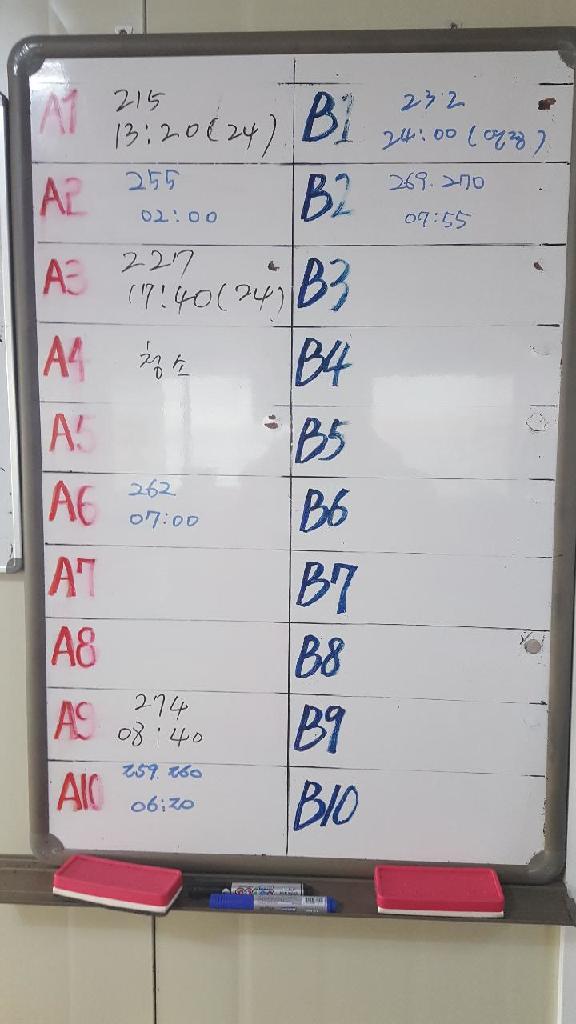 A1
215
13:20(24)
A2
255
02:00
A3
227
17:40(24)
A4
청소
A5
A6
262
07:00
A7
A8
A9
274
08:40
A10
259.260
06:20
B1
232
24:00(연장)
B2
269.270
07:55
B3
B4
B5
B6
B7
B8
B9
B10